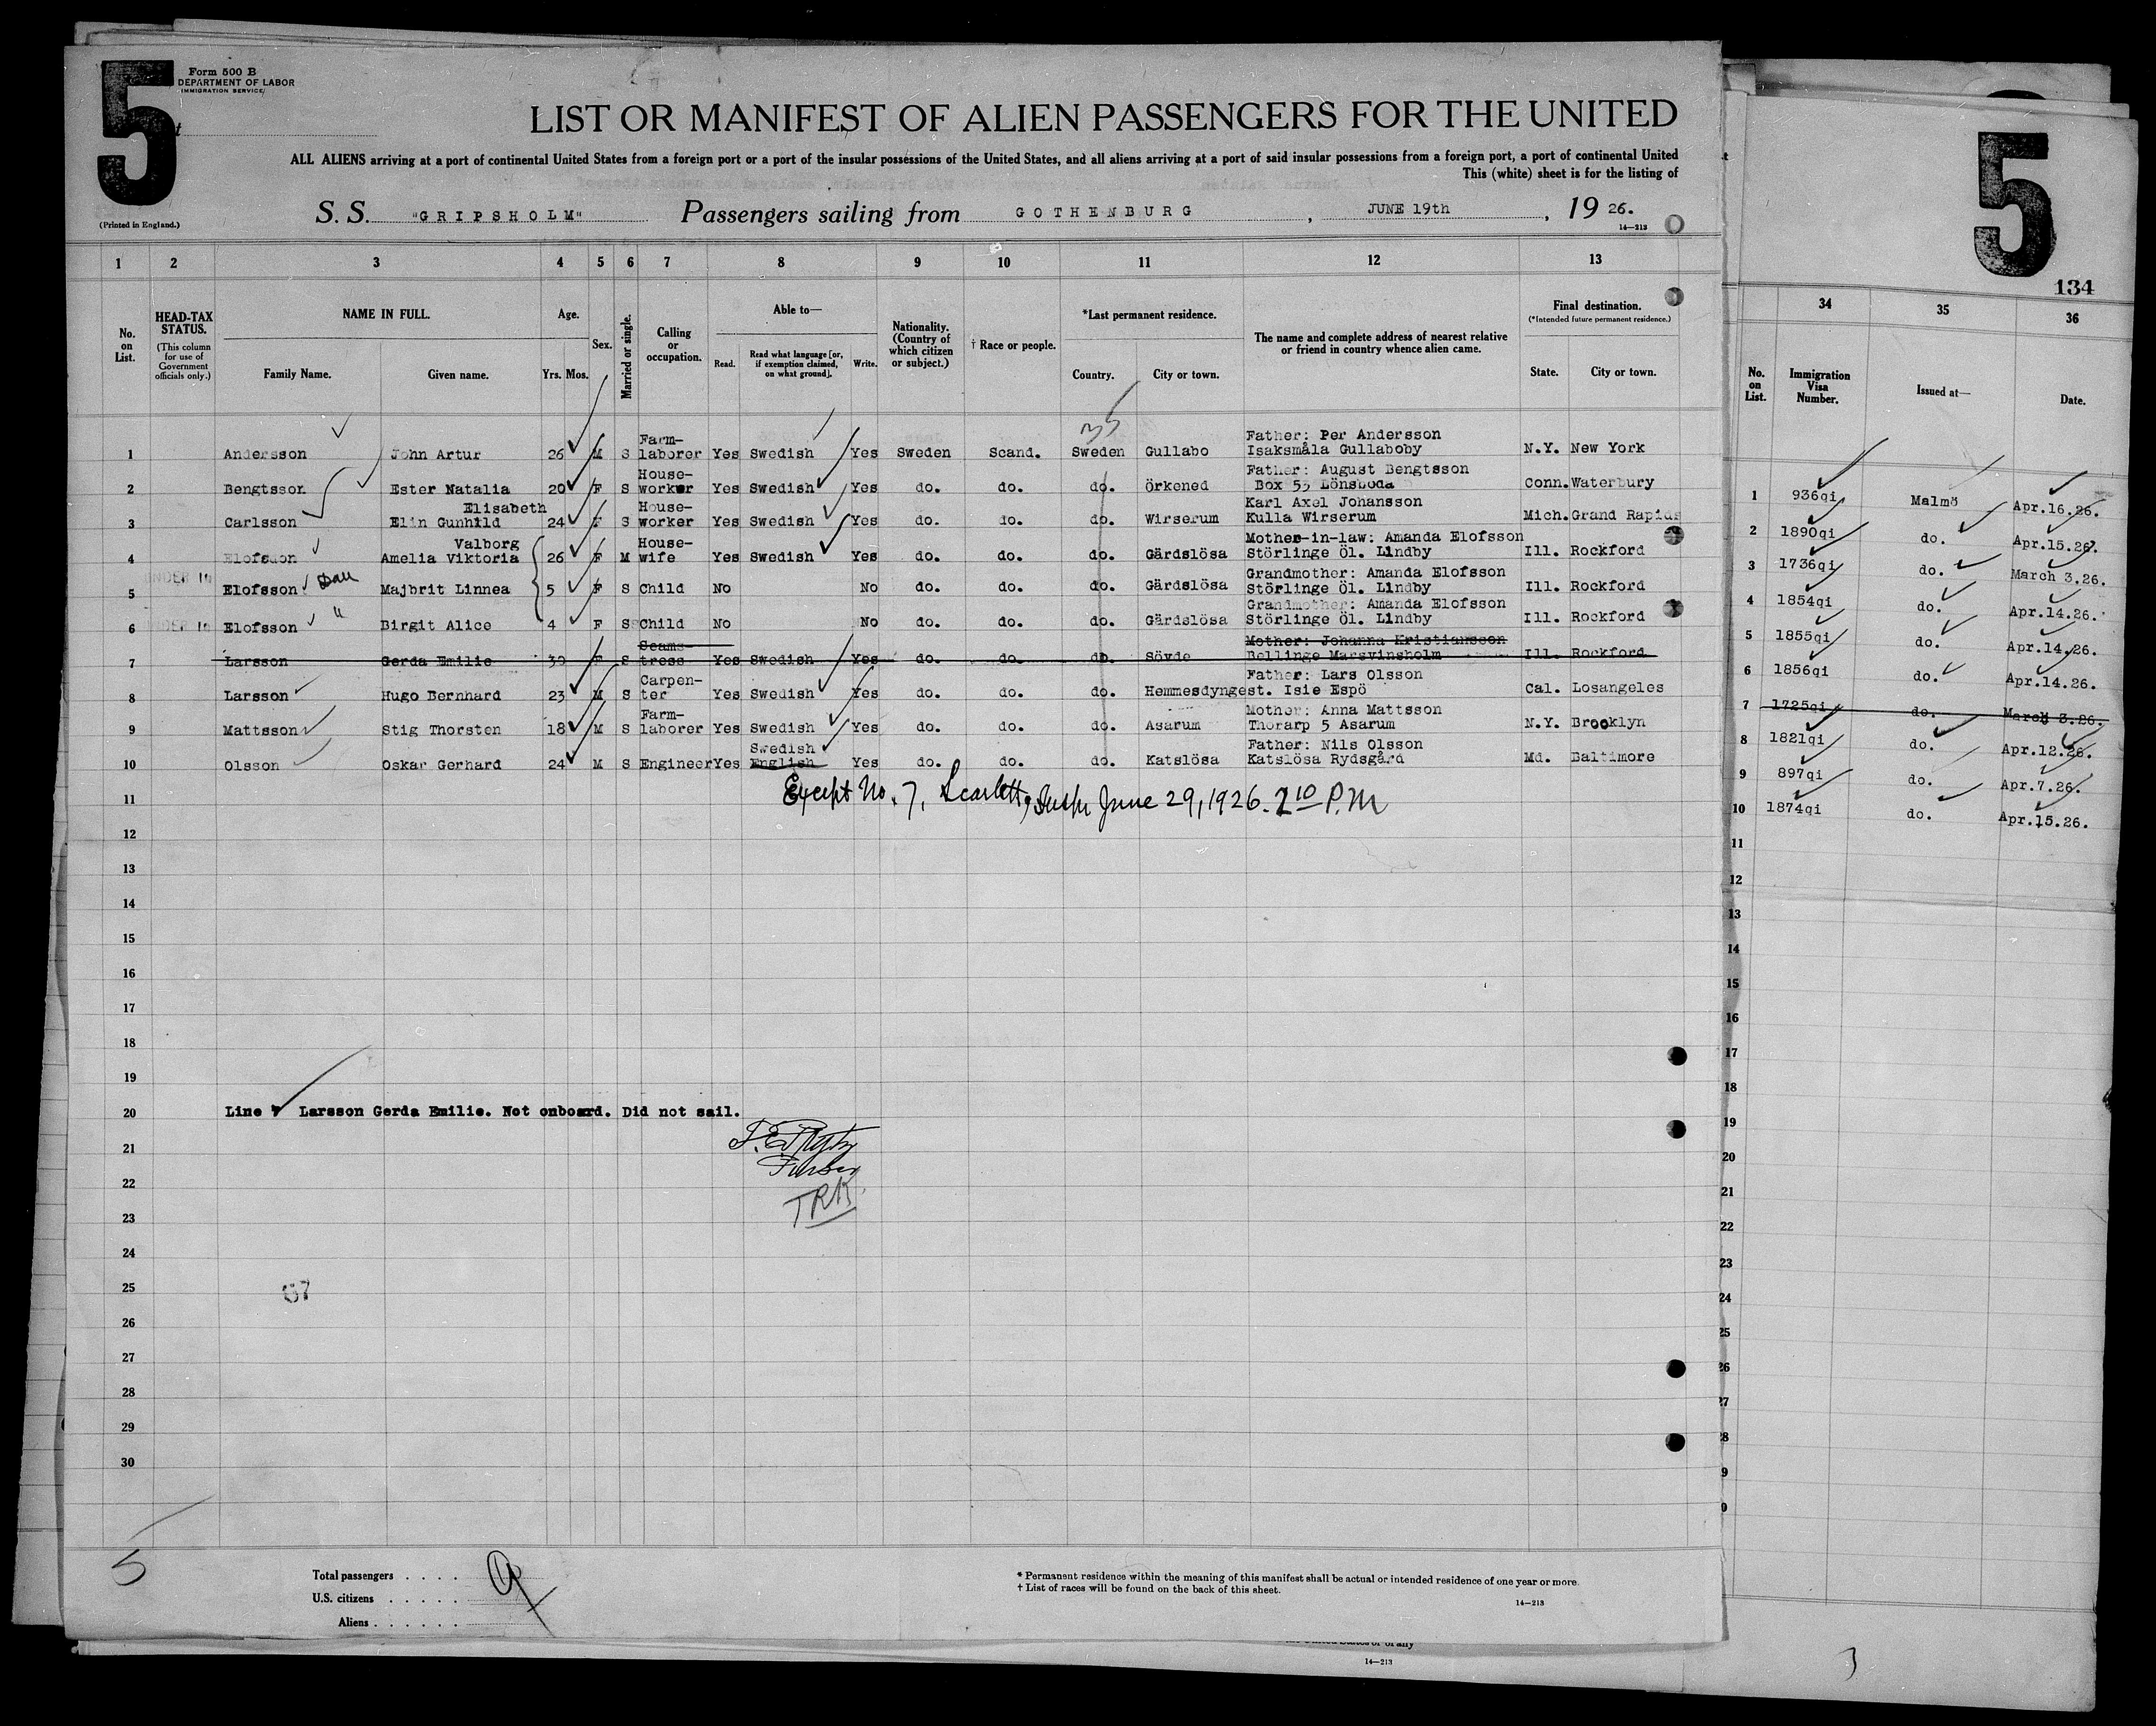 5
Form 500 B
DEPARTMENT OF LABOR
IMMIGRATION SERVICE
LIST OR MANIFEST OF ALIEN PASSENGERS FOR THE UNITED
ALL ALIENS arriving at a port of continental United States from a foreign port or a port of the insular possessions of the United States, and all aliens arriving at a port of said insular possessions from a foreign port, a port of continental United
This (white) sheet is for the listing of
(Printed in England.)
S. S. "GRIPSHOLM" Passengers sailing from GOTHENBURG, JUNE 19th, 1926.
14—213
1 2 3 4 5 6 7 8 9 10 11 12 13
No. on List. HEAD-TAX STATUS. (This column for use of Government officials only.) NAME IN FULL. Family Name. Given name. Age. Yrs. Mos. Sex. Married or single. Calling or occupation. Able to— Read. Read what language [or, if exemption claimed, on what ground]. Write. Nationality. (Country of which citizen or subject.) † Race or people. *Last permanent residence. Country. City or town. The name and complete address of nearest relative or friend in country whence alien came. Final destination. (*Intended future permanent residence.) State. City or town.
1 Andersson John Artur 26 M S Farm-laborer Yes Swedish Yes Sweden Scand. Sweden Gullabo Father: Per Andersson Isaksmåla Gullaboby N.Y. New York
2 Bengtsson Ester Natalia 20 F S House-worker Yes Swedish Yes do. do. do. Örkened Father: August Bengtsson Box 55 Lönsboda Conn. Waterbury
3 Carlsson Elisabeth Elin Gunhild 24 F S House-worker Yes Swedish Yes do. do. do. Wirserum Karl Axel Johansson Kulla Wirserum Mich. Grand Rapids
4 Elofsson Valborg Amelia Viktoria 26 F M House-wife Yes Swedish Yes do. do. do. Gärdslösa Mother-in-law: Amanda Elofsson Störlinge Öl. Lindby Ill. Rockford
5 Elofsson Dau Majbrit Linnea 5 F S Child No No do. do. do. Gärdslösa Grandmother: Amanda Elofsson Störlinge Öl. Lindby Ill. Rockford
6 Elofsson " Birgit Alice 4 F S Child No No do. do. do. Gärdslösa Grandmother: Amanda Elofsson Störlinge Öl. Lindby Ill. Rockford
7 Larsson Gerda Emilie 30 F S Seams-tress Yes Swedish Yes do. do. do. Sövde Mother: Johanna Kristiansson Bellinge Marsvinsholm Ill. Rockford
8 Larsson Hugo Bernhard 23 M S Carpen-ter Yes Swedish Yes do. do. do. Hemmesdynge Father: Lars Olsson st. Isie Espö Cal. Losangeles
9 Mattsson Stig Thorsten 18 M S Farm-laborer Yes Swedish Yes do. do. do. Asarum Mother: Anna Mattsson Thorarp 5 Asarum N.Y. Brooklyn
10 Olsson Oskar Gerhard 24 M S Engineer Yes Swedish English Yes do. do. do. Katslösa Father: Nils Olsson Katslösa Rydsgård Md. Baltimore
11 Except No. 7, Scarlett, Insp. June 29, 1926. 2 10 P.M
12
13
14
15
16
17
18
19
20 Line 7 Larsson Gerda Emilie. Not onboard. Did not sail.
21
Purser
22
TRK
23
24
25
26
27
28
29
30
5
Total passengers . . . . 9
U.S. citizens . . . . .
Aliens . . . . . .
* Permanent residence within the meaning of this manifest shall be actual or intended residence of one year or more.
† List of races will be found on the back of this sheet.
14—213
14—213
5
134
34 35 36
No. on List. Immigration Visa Number. Issued at— Date.
1 936qi Malmö Apr.16.26.
2 1890qi do. Apr.15.26.
3 1736qi do. March 3.26.
4 1854qi do. Apr.14.26.
5 1855qi do. Apr.14.26.
6 1856qi do. Apr.14.26.
7 1725qi do. March 3.26.
8 1821qi do. Apr.12.26.
9 897qi do. Apr.7.26.
10 1874qi do. Apr.15.26.
11
12
13
14
15
16
17
18
19
20
21
22
23
24
25
26
27
3